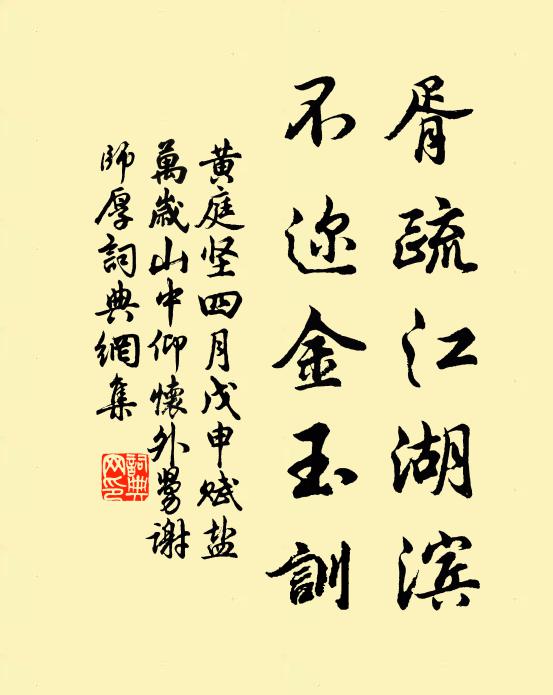 胥疏江湖滨
不迩金玉訓
黄庭坚四月戊申赋盐
萬歲山中仰懷外舅謝
師厚詞典網集
詞典
网印